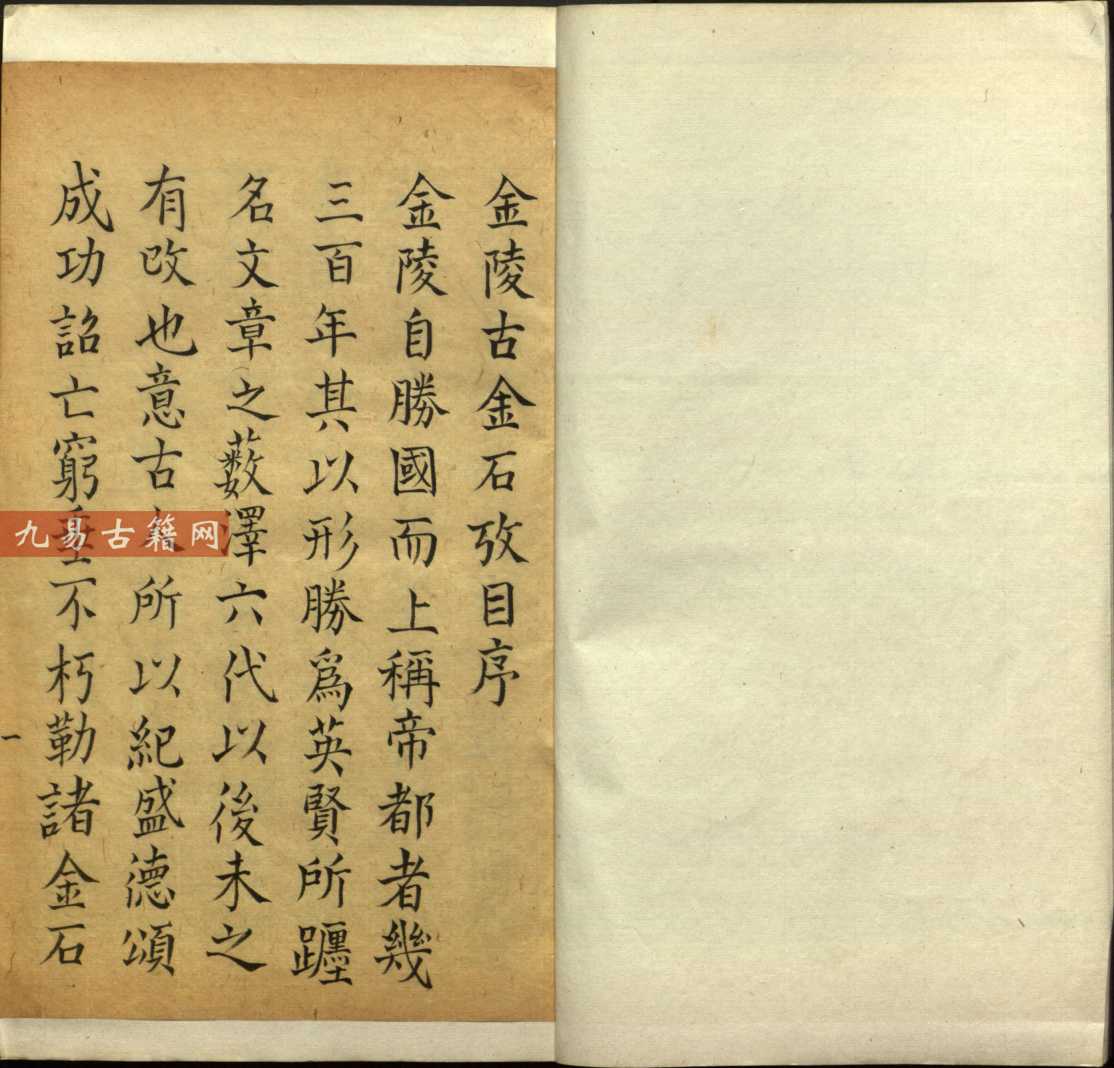 金陵古金石攷目序
金陵自勝國而上稱帝都者幾
三百年其以形勝爲英賢所躔
名文章之藪澤六代以後未之
有改也意古所以紀盛德頌
成功詔亡窮垂不朽勒諸金石
一
九易古籍网